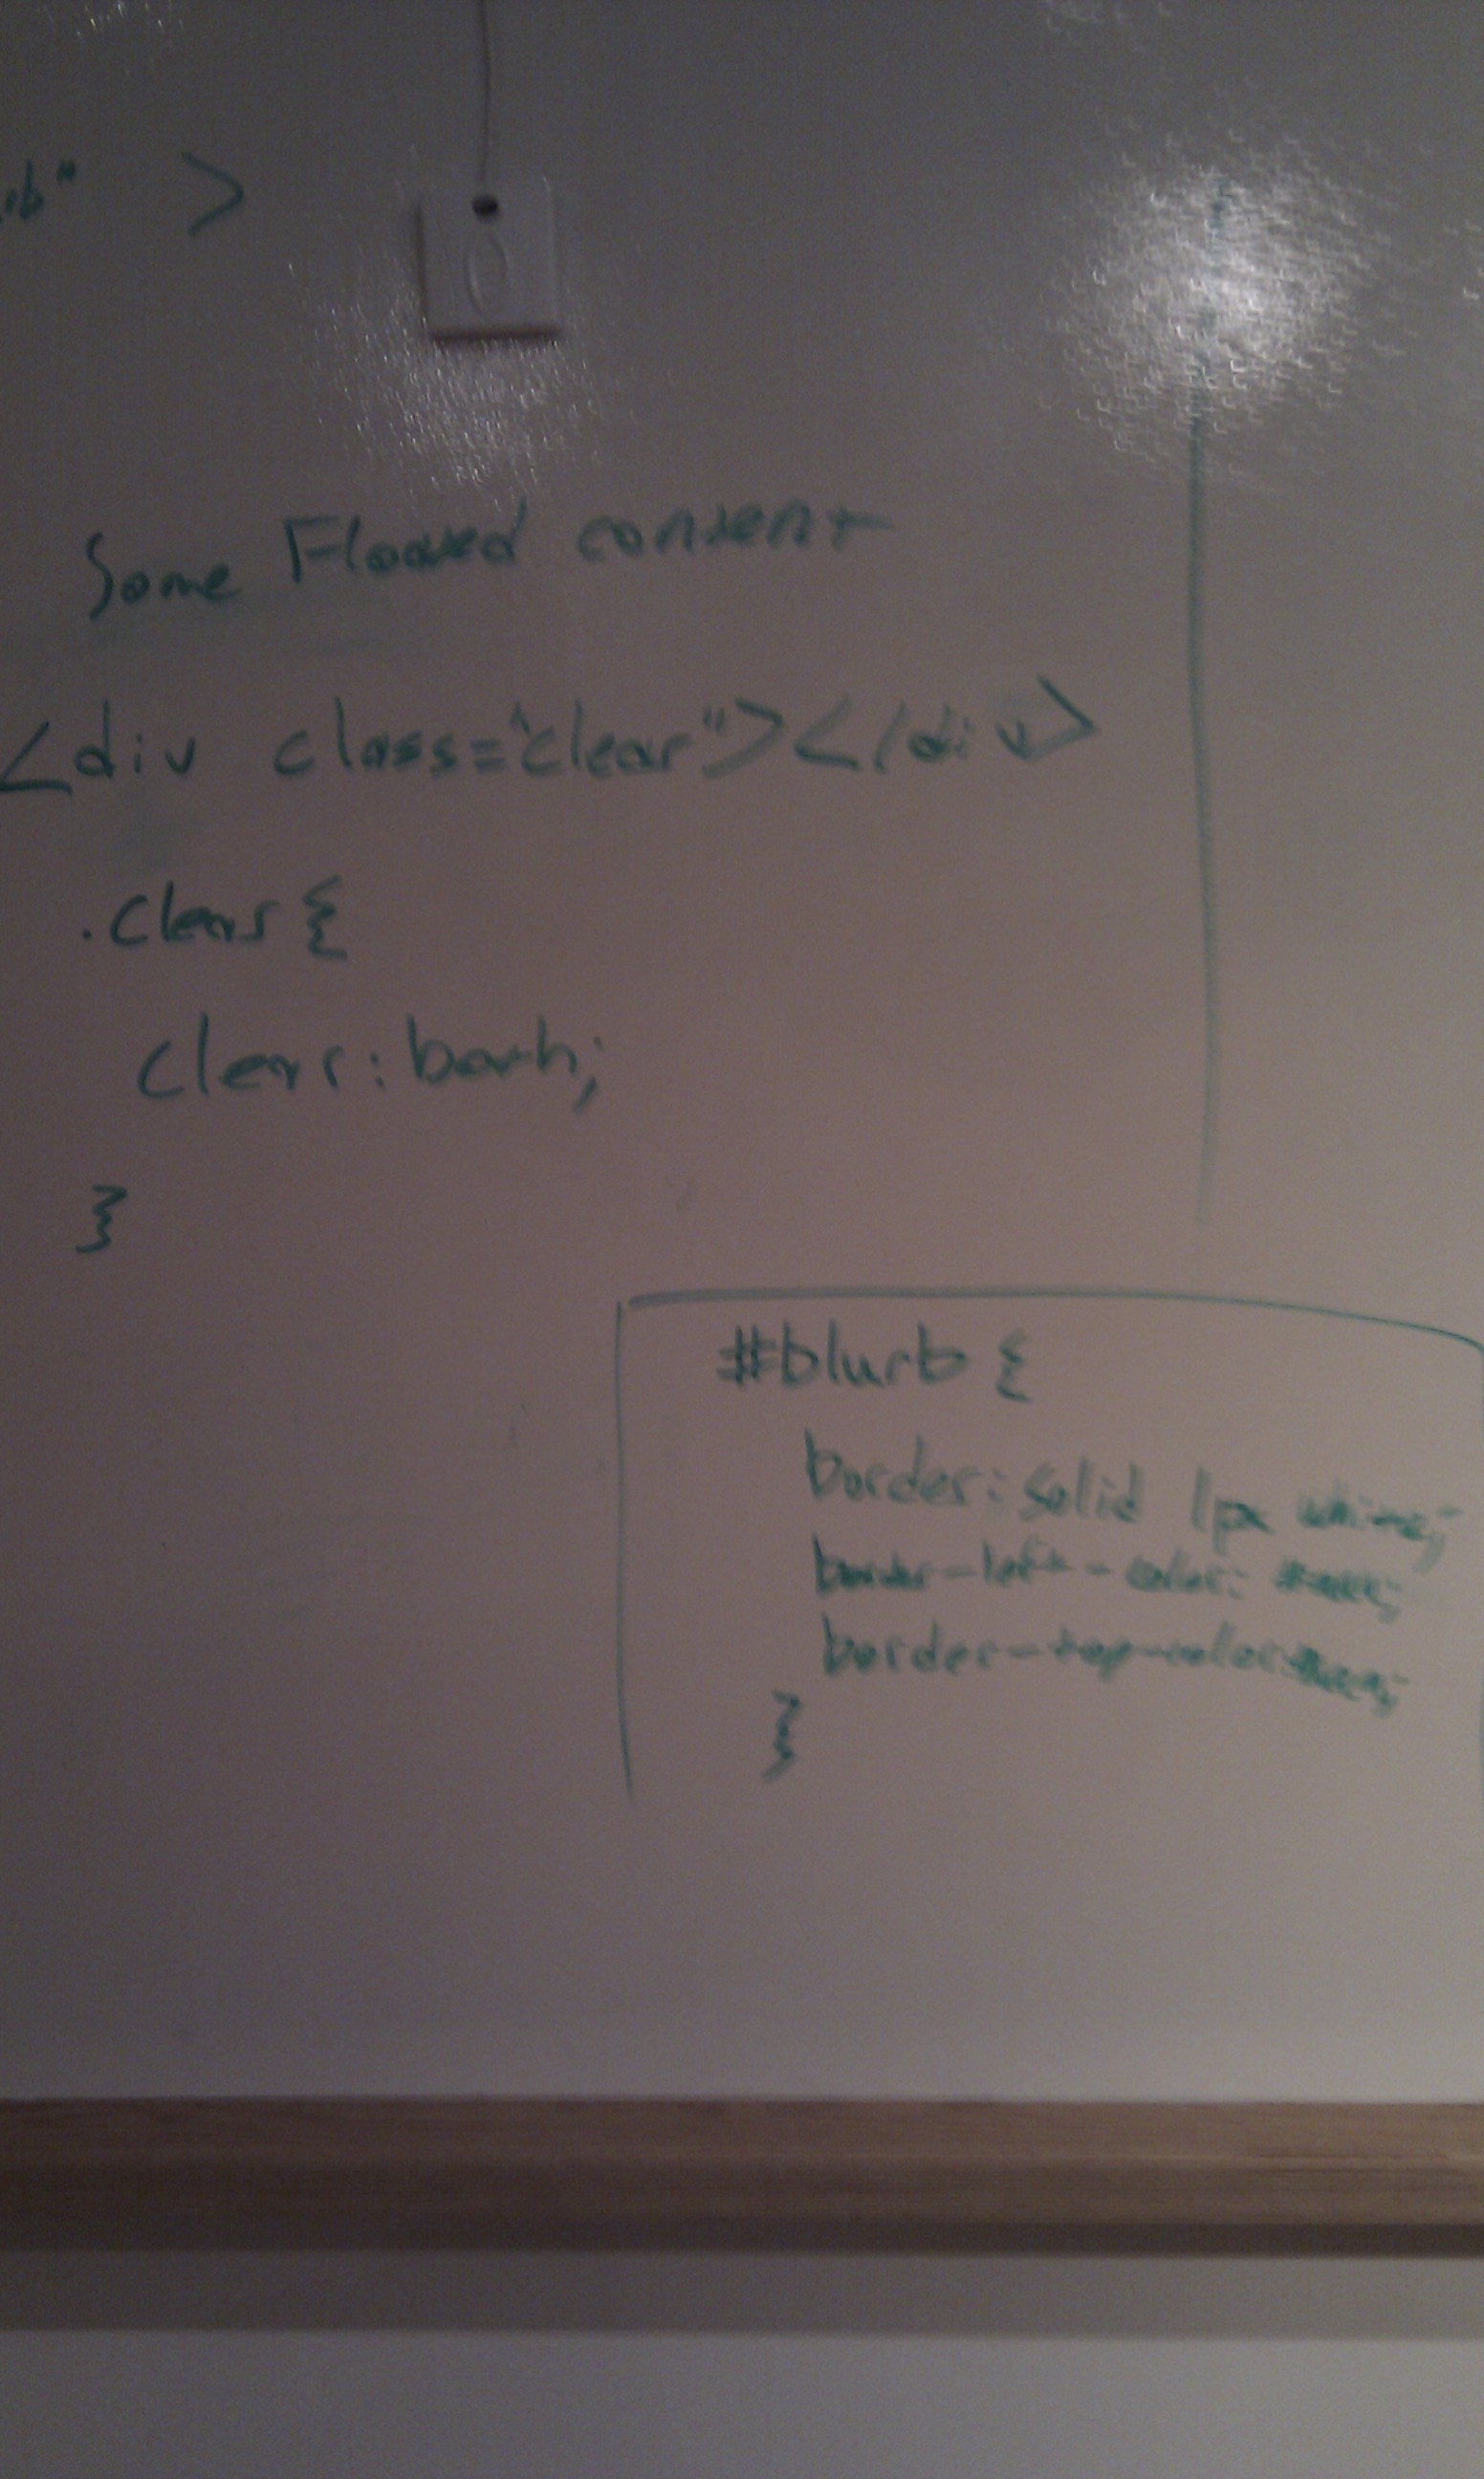 >
Some Floated content
<div class="clear"></div>
.clear {
clear: both;
}
#blurb {
border: solid 1px white;
border-left-color:
border-top-color:
}